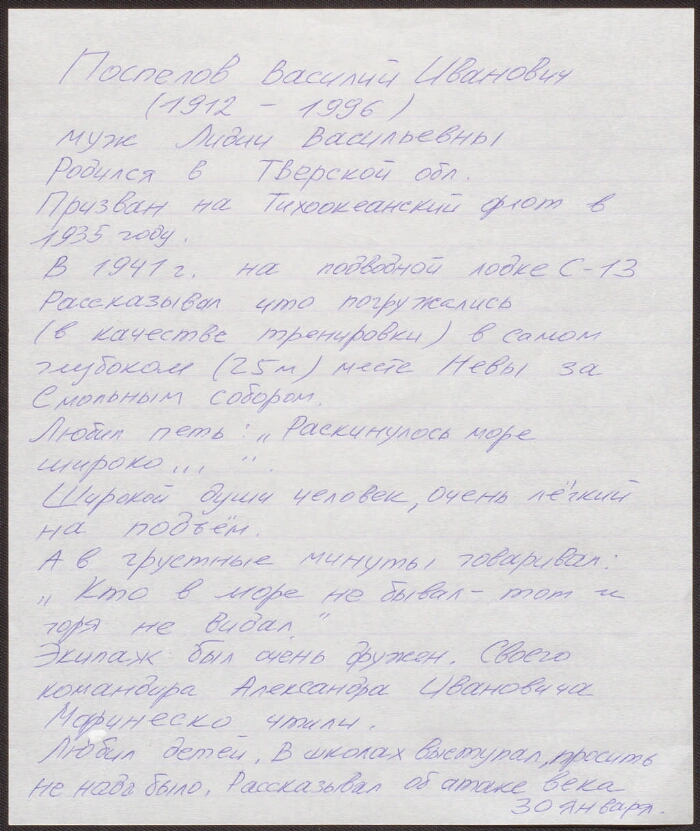 Поспелов Василий Иванович
(1912 – 1996)
муж Лидии Васильевны
Родился в Тверской обл.
Призван на Тихоокеанский флот в
1935 году.
В 1941 г. на подводной лодке С-13
Рассказывал что погружались
(в качестве тренировки) в самом
глубоком (25м) месте Невы за
Смольным собором.
Любил петь: „Раскинулось море
широко,,, ".
Широкой души человек, очень лёгкий
на подъём.
А в грустные минуты говаривал:
„Кто в море не бывал – тот и
горя не видал."
Экипаж был очень дружен. Своего
командира Александра Ивановича
Маринеско чтили.
Любил детей. В школах выступал, просить
не надо было. Рассказывал об атаке века
30 января.